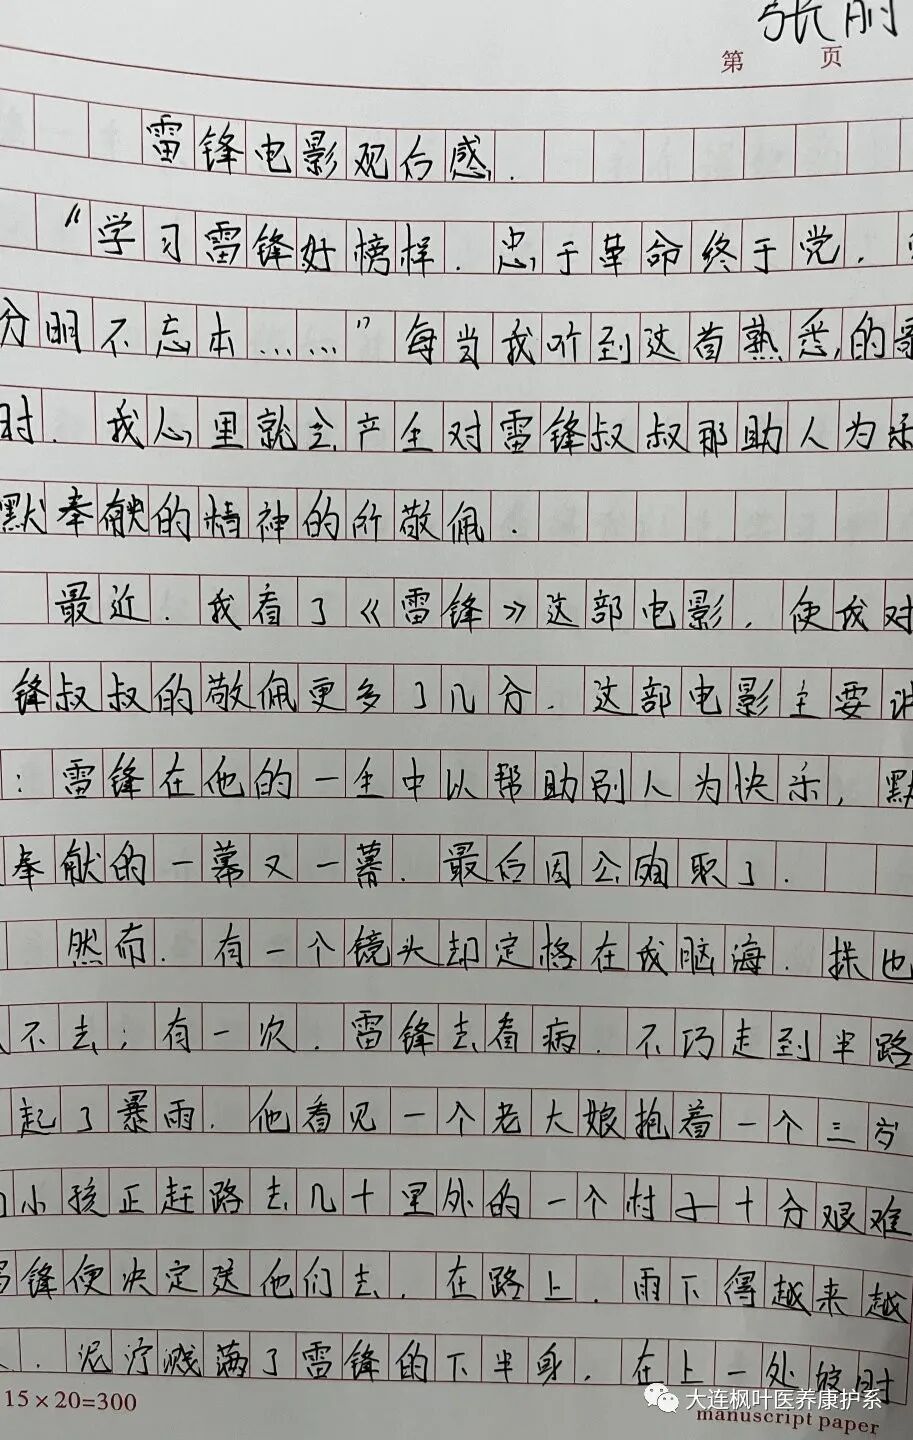 张刖
第 页
雷锋电影观后感.
“学习雷锋好榜样.忠于革命终于党,
分明不忘本……”每当我听到这首熟悉的歌
时.我心里就会产生对雷锋叔叔那助人为乐
默奉献的精神的所敬佩.
最近.我看了《雷锋》这部电影,使我对
锋叔叔的敬佩更多了几分.这部电影主要讲
:雷锋在他的一生中以帮助别人为快乐,默
奉献的一幕又一幕.最后因公殉职了.
然而.有一个镜头却定格在我脑海.抹也
不去;有一次.雷锋去看病.不巧走到半路
起了暴雨.他看见一个老大娘抱着一个三岁
小孩正赶路去几十里外的一个村子十分艰难
锋便决定送他们去.在路上.雨下得越来越
.泥泞溅满了雷锋的下半身.在上一处坡时
15×20=300
大连枫叶医养康护系
manuscript paper